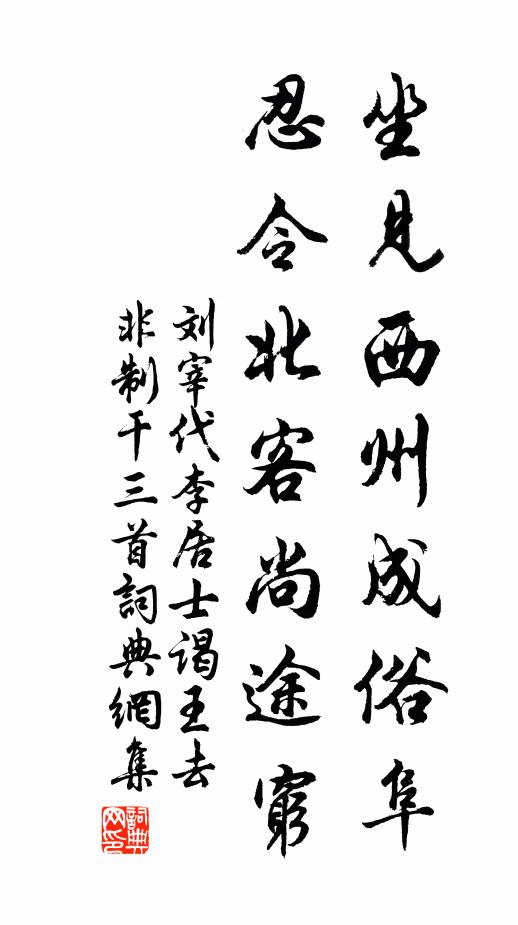 坐見西州成俗阜
忍令北客尚途窮
刘宰代李居士謁王去
非制干三首詞典網集
詞典網印